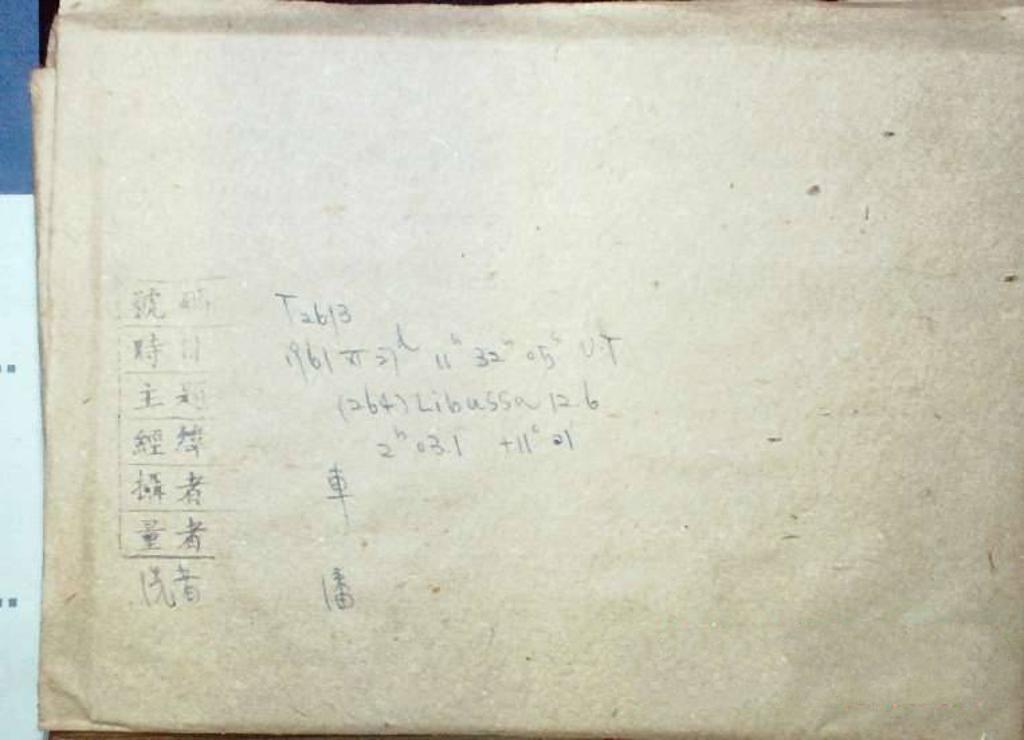 號碼 T2613
時日 1961 XI 27ᵈ 11ʰ 32ᵐ 05ˢ U.T
主題 (264) Libussa 12.6
經緯 2ʰ 03.1 +11° 21
攝者 車
量者
洗者 潘